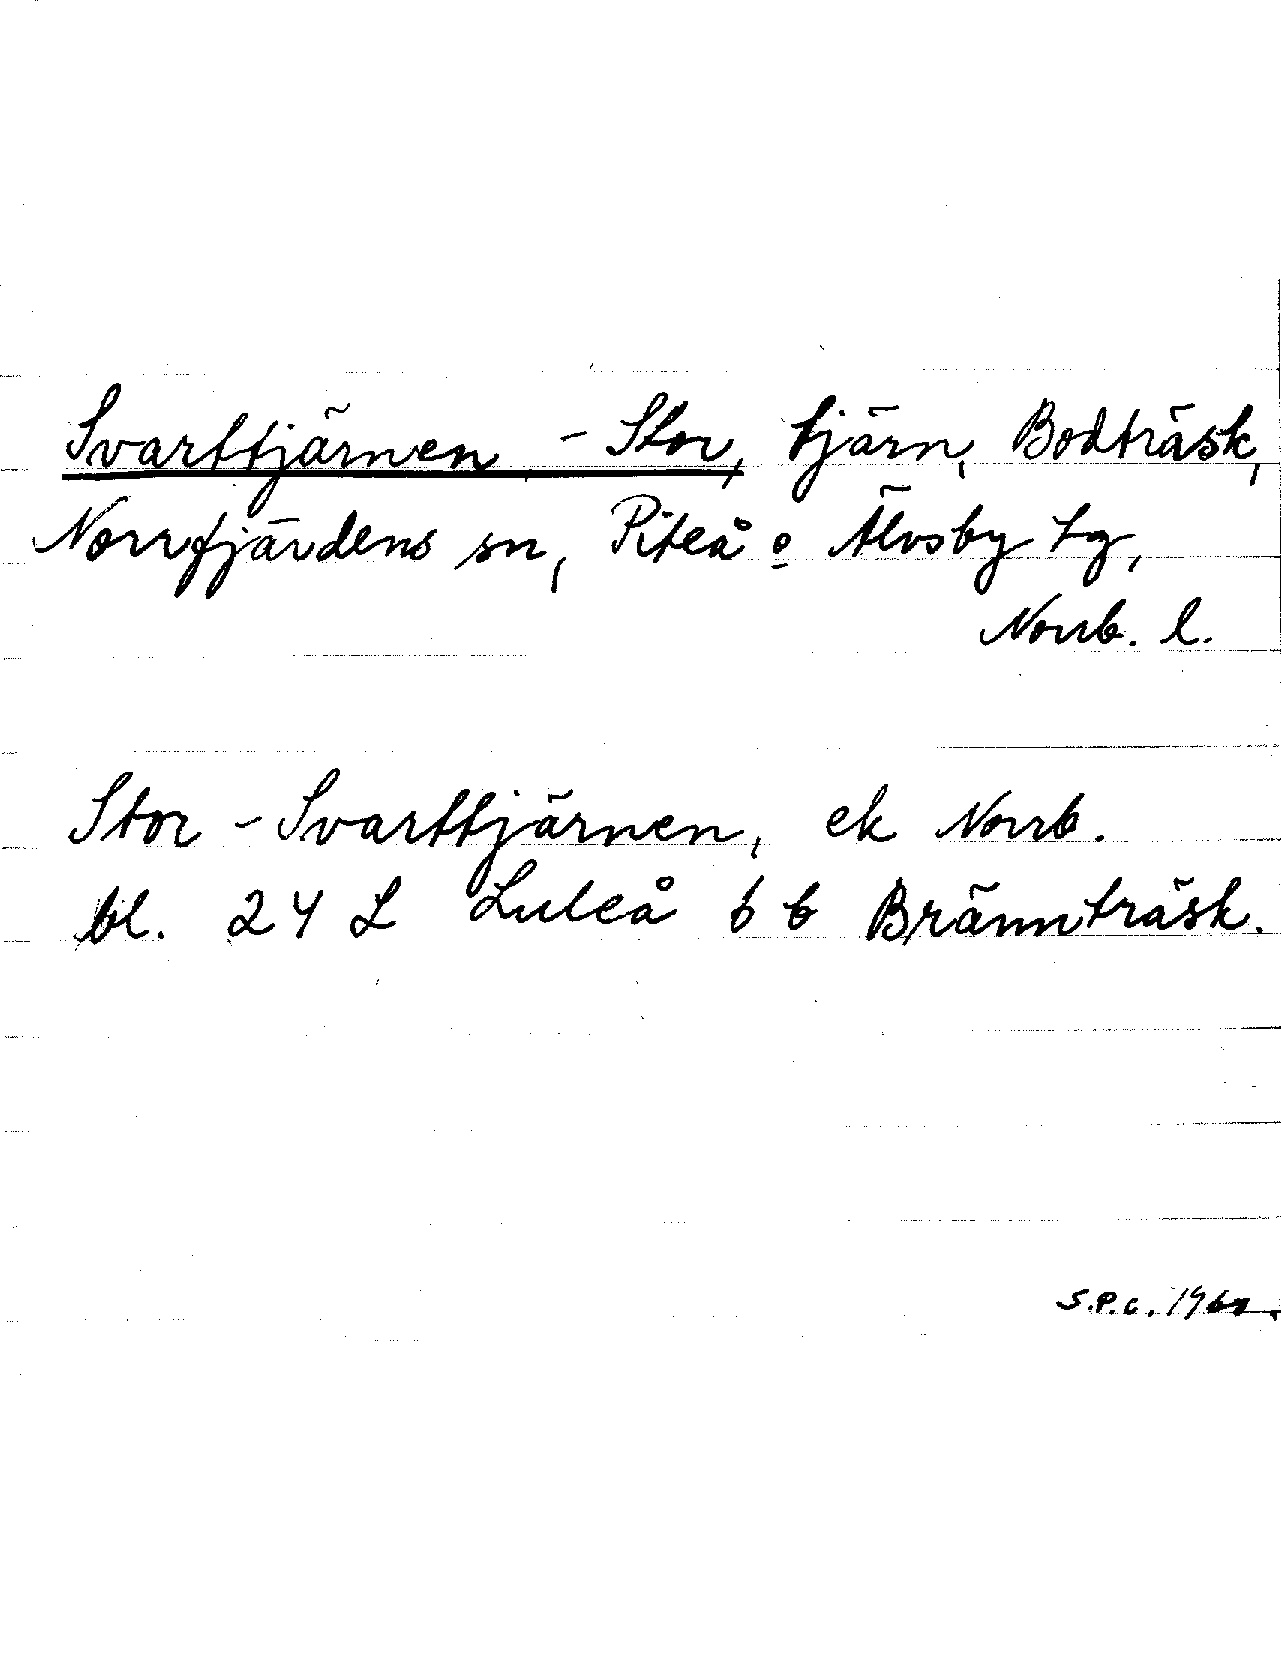 Svarttjärnen, - Stor, tjärn, Bodträsk,
Norrfjärdens sn, Piteå o Älvsby tg,
Norrb. l.
Stor - Svarttjärnen, ek Norrb.
bl. 24 L Luleå 6 b Brännträsk.
S.P.C.